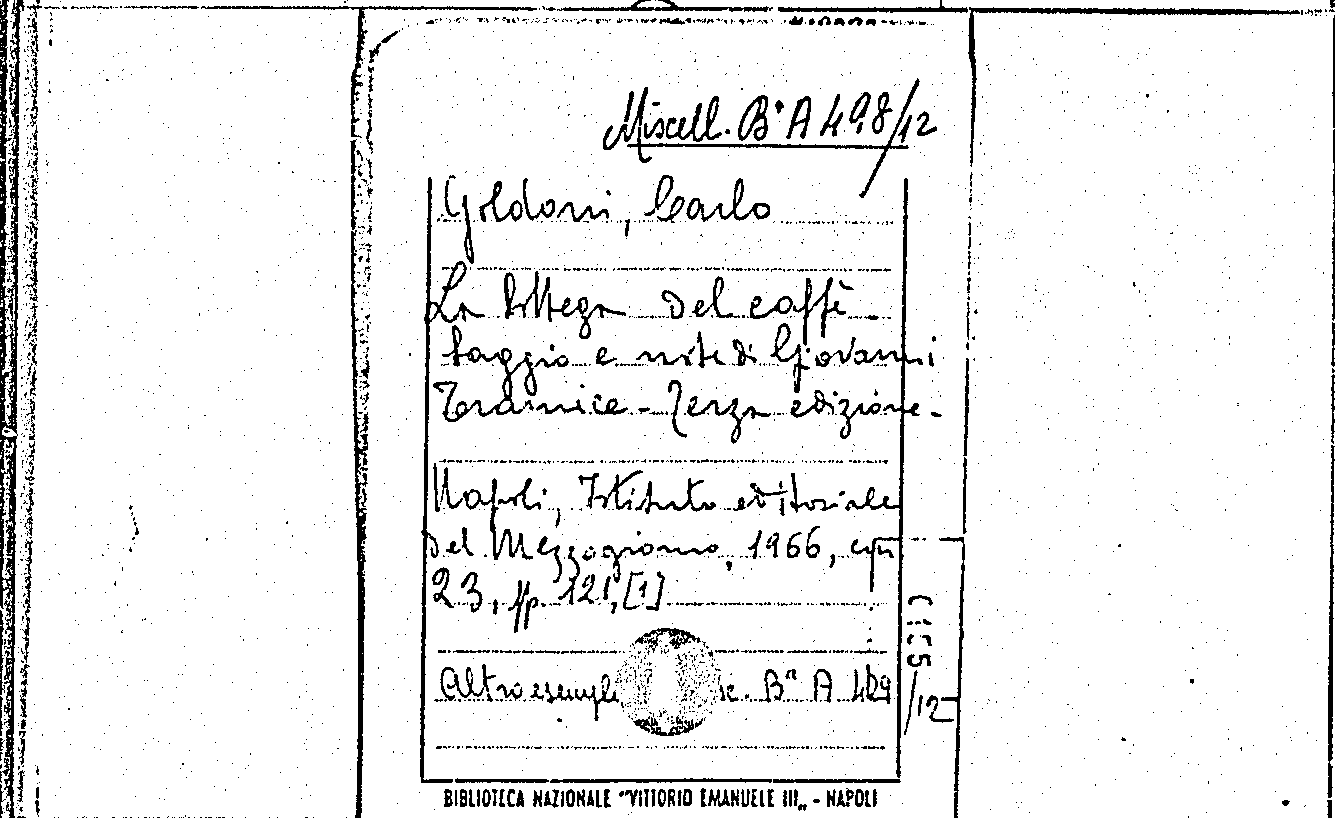 Miscell. Bª A 498/12
Goldoni, Carlo
La bottega del caffè -
Saggio e note di Giovanni
Tramice - Terza edizione -
Napoli, Istituto editoriale
del Mezzogiorno, 1966, cm
23, pp. 121, [1]
Altro esempl Bª A
/12
BIBLIOTECA NAZIONALE "VITTORIO EMANUELE III„ - NAPOLI